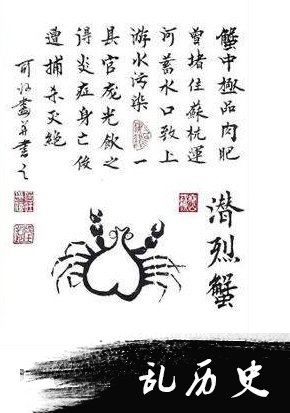 蟹中極品肉肥
曾堵住蘇杭運
河蓄水口致上
游水污染一
县官庞光飲之
得炎症身亡後
遭捕杀灭絕
可归畵并書之
潜烈蟹
乱历史